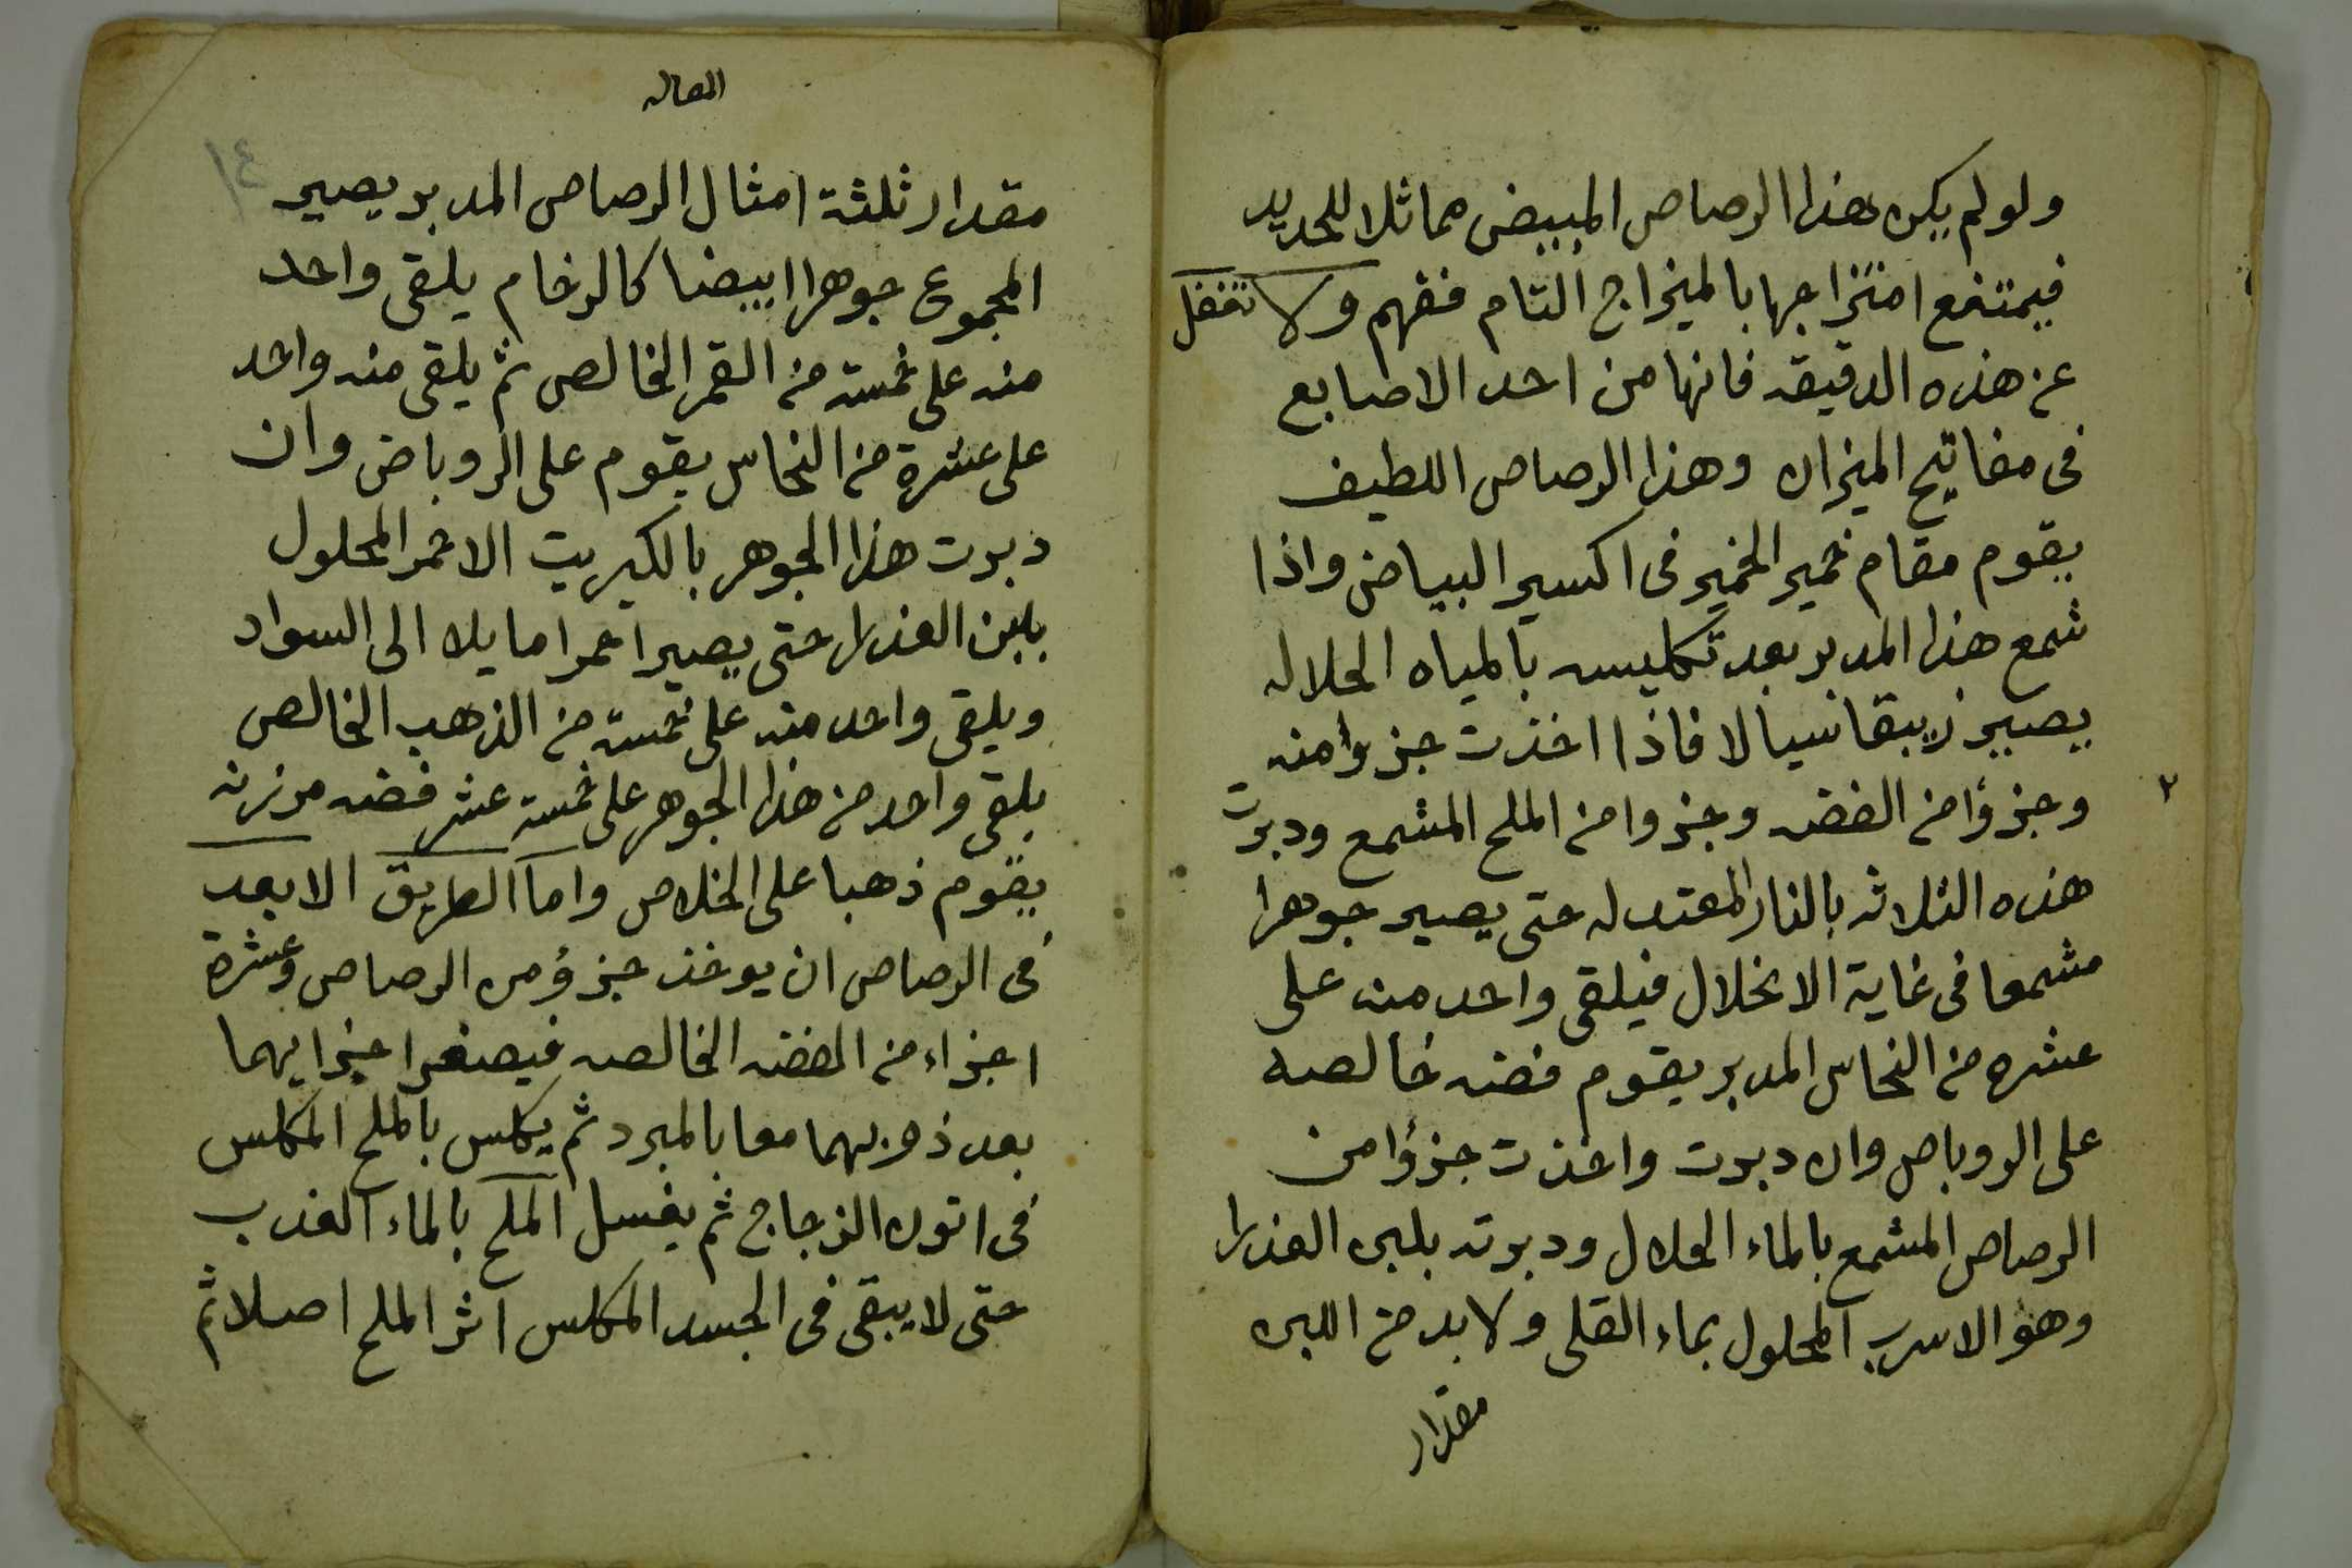 ولو لم يكن هذا الرصاص المبيض مماثلا للحديد
فيمتنع امتزاجها بالميزاج التام ففهم ولا تغفل
عن هذه الدقيقه فانها من احد الاصابع
فى مفاتيح الميزان وهذا الرصاص اللطيف
يقوم مقام خمير الخمير فى اكسير البياض واذا
شمع هذا المدبر بعد تكليسه بالمياه الحلاله
يصير زيبقا سيالا فاذا اخذت جزوا منه
٢
وجزؤا من الفضه وجزوا من الملح المشمع ودبرت
هذه الثلاثه بالنار المعتدله حتى يصير جوهرا
مشمعا فى غاية الانحلال فيلقى واحد منه على
عشره من النحاس المدبر يقوم فضه خالصه
على الروباص وان دبرت واخذت جزؤا من
الرصاص المشمع بالماء الحلال ودبرته بلبن العذرا
وهو الاسرب المحلول بماء القلى ولابد من اللبن
مقدار
المقاله
١٤
مقدار ثلثة امثال الرصاص المدبر يصير
المجموع جوهرا ابيضا كالرخام يلقى واحد
منه على خمسته من القمر الخالص ثم يلقى منه واحد
على عشرة من النحاس يقوم على الروباض وان
دبرت هذا الجوهر بالكبريت الاحمر المحلول
بلبن العذرا حتى يصير احمرا مايلا الى السواد
ويلقى واحد منه على خمسته من الذهب الخالص
يلقى واحد من هذا الجوهر على خمسته عشر فضه مرزنه
يقوم ذهبا على الخلاص واما الطريق الابعد
فى الرصاص ان يوخذ جزؤ من الرصاص وعشرة
اجزاء من الفضه الخالصه فيصغر اجزايهما
بعد ذوبهما معا بالمبرد ثم يكلس بالملح المكلس
فى اتون الزجاج ثم يغسل الملح بالماء العذب
حتى لا يبقى فى الجسد المكلس اثر الملح اصلا ثم